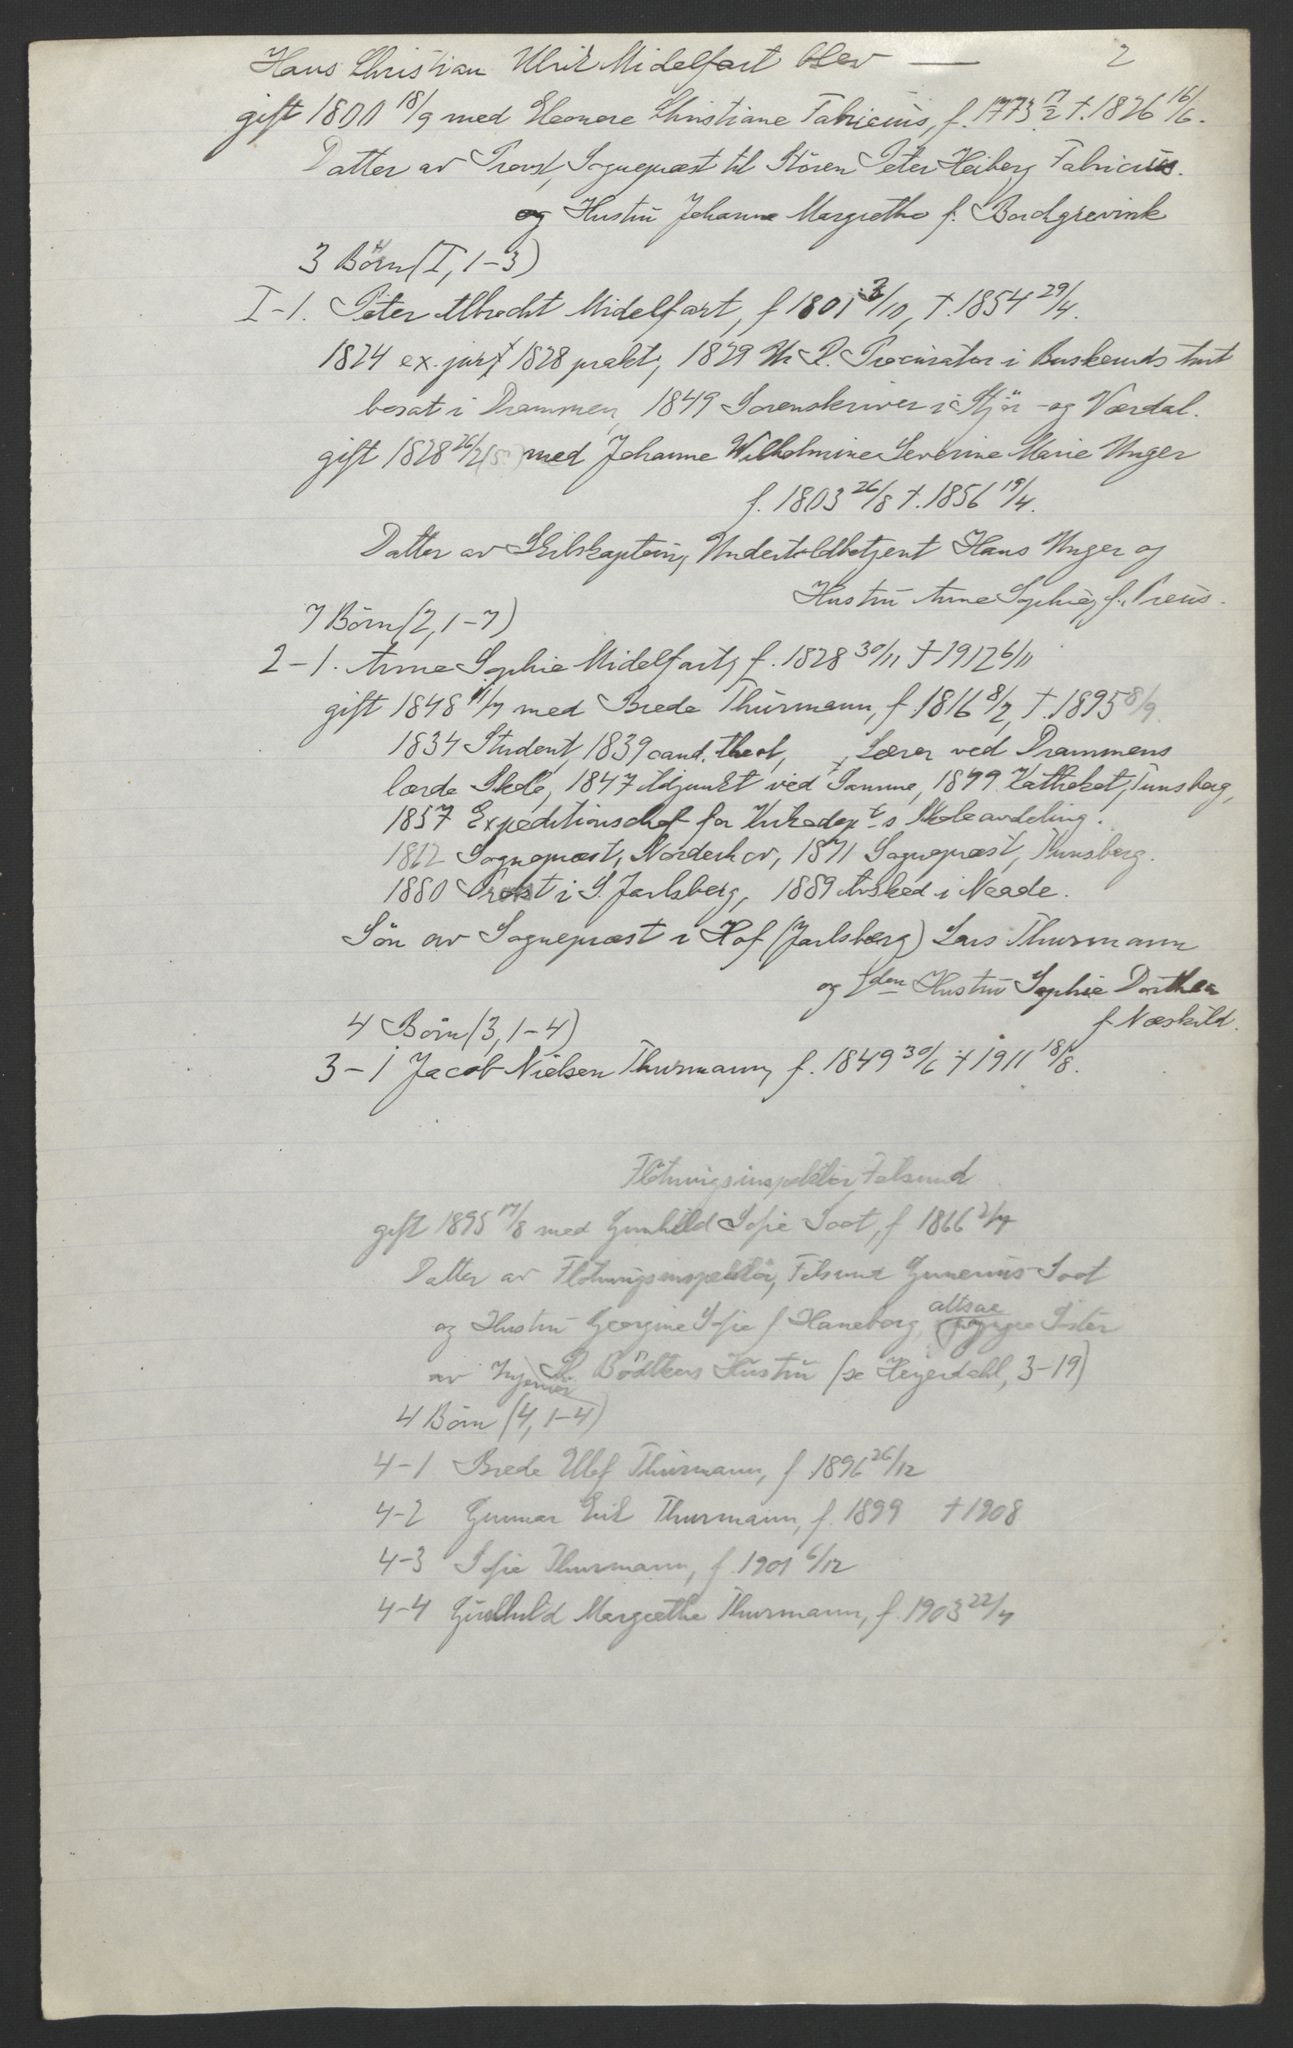 Hans Christian Ulrik Midelfart blev — 2
gift 1800 18/9 med Eleonore Christiane Fabricius, f. 1773 17/2 †. 1826 16/6.
Datter av Provst, Sognepræst til Stören Peter Heiberg Fabricius.
og Hustru Johanne Margrethe f. Bordgrevink
3 Börn (I, 1-3)
I-1. Peter Albrecht Midelfart, f 1801 3/10, †. 1854 29/4.
1824 ex. jur, 1828 prakt, 1829 P. Procurator i Buskeruds Amt
bosat i Drammen, 1849 Sorenskriver i Stjör- og Værdal.
gift 1828 26/2 med Johanne Wilhelmine Severine Marie Unger
f. 1803 26/8 †. 1856 19/4.
Datter av Skibskaptein, Undertoldbetjent Hans Unger og
Hustru Anne Sophie, f. Preus.
7 Börn (2, 1-7)
2-1. Anne Sophie Midelfart, f. 1828 30/11 † 1912 6/11
gift 1848 11/7 med Brede Thurmann, f. 1816 8/2, †. 1895 8/9.
1834 Student, 1839 cand. theol, , Lærer ved Drammens
lærde Skole, 1847 Adjunkt ved Samme, 1849 Katheket, Tunsberg,
1857 Expeditionschef for Kirkedept-s Skoleavdeling.
1862 Sognepræst, Norderhov, 1871 Sognepræst, Tunsberg.
1880 Provst i S. Jarlsberg, 1889 Avsked i Naade.
Sön av Sognepræst i Hof (Jarlsberg) Lars Thurmann
og den Hustru Sophie Dorthea
f. Næskild.
4 Börn (3, 1-4)
3-1 Jacob Nielsen Thurmann, f. 1849 30/6 † 1911 18/8.
Flötningsinspektör, Fetsund
gift 1895 17/8 med Gunhild Sofie Soot, f 1866 2/7
Datter av Flötningsinspektör, Fetsund Gunerius Soot
og Hustru Georgine Sofie f Haneborg, altsaa Söster
av Ingeniör R. Bödtkers Hustru (se Heyerdahl, 3-19)
4 Börn (4, 1-4)
4-1 Brede Ulef Thurmann, f 1896 26/12
4-2 Gunnar Erik Thurmann, f. 1899 † 1908
4-3 Sofie Thurmann, f 1901 6/12
4-4 Gunhild Margrethe Thurmann, f. 1903 22/7